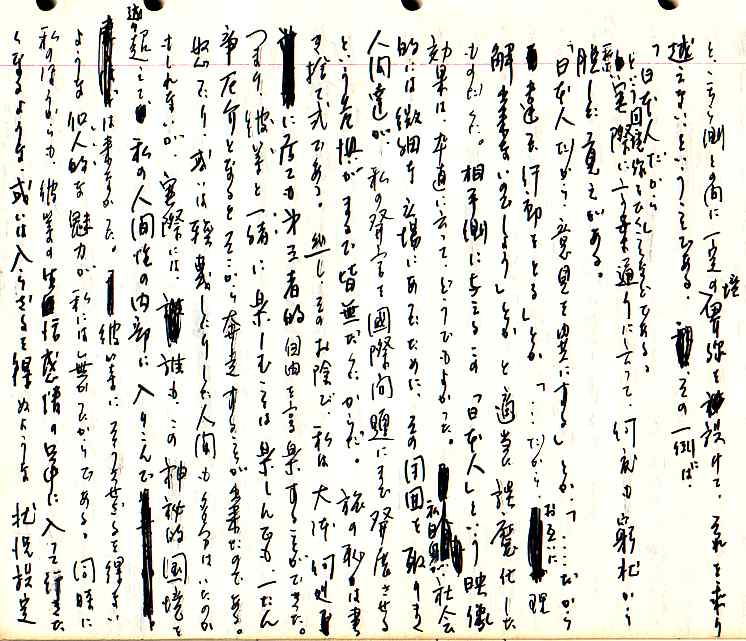 と、こちら側との間に一定の境界線を設けて、それを乗り
越えないということである。その一例は、
「日本人だから」
という回避線を
歴、実際に言葉通りに云って、何度も窮地から
脱した覚えがある。
「日本人だから意見を異にする」とか「……だから
違う行動をとる」とか「……だから、お互いに理
解出来ないのでしょう」とか、と適当に誤魔化した
ものだった。相手側に与えるこの「日本人」という映像
効果は、卒直に云って、どうでもよかった。私自身が社会
的には微細な立場にあったために、その周囲を取りまく
人間達が、私の発言を国際問題にまで発展させる
という危惧がまるで皆無だったからだ。旅の恥は書
き捨て式である。然し、そのお陰で、私は大体何処
に居ても第三者的自由を享楽することができた。
つまり彼等と一緒に楽しむことは楽しんでも、一たん
争在となるとそこから奔走することが出来たのである。
怒ったり、或いは軽蔑したりした人間も多分はいたのか
もしれないが、実際には、誰も、この神秘的国境を
通り超えて私の人間性の内部に入りこんで
は来なかった。彼等にそうさせざるを得ない
ような個人的な魅力が私には無かったからである。同時に
私のほうからも彼等の生活感情の中に入って行きた
くなるような、或いは入らざるを得ぬような状況設定